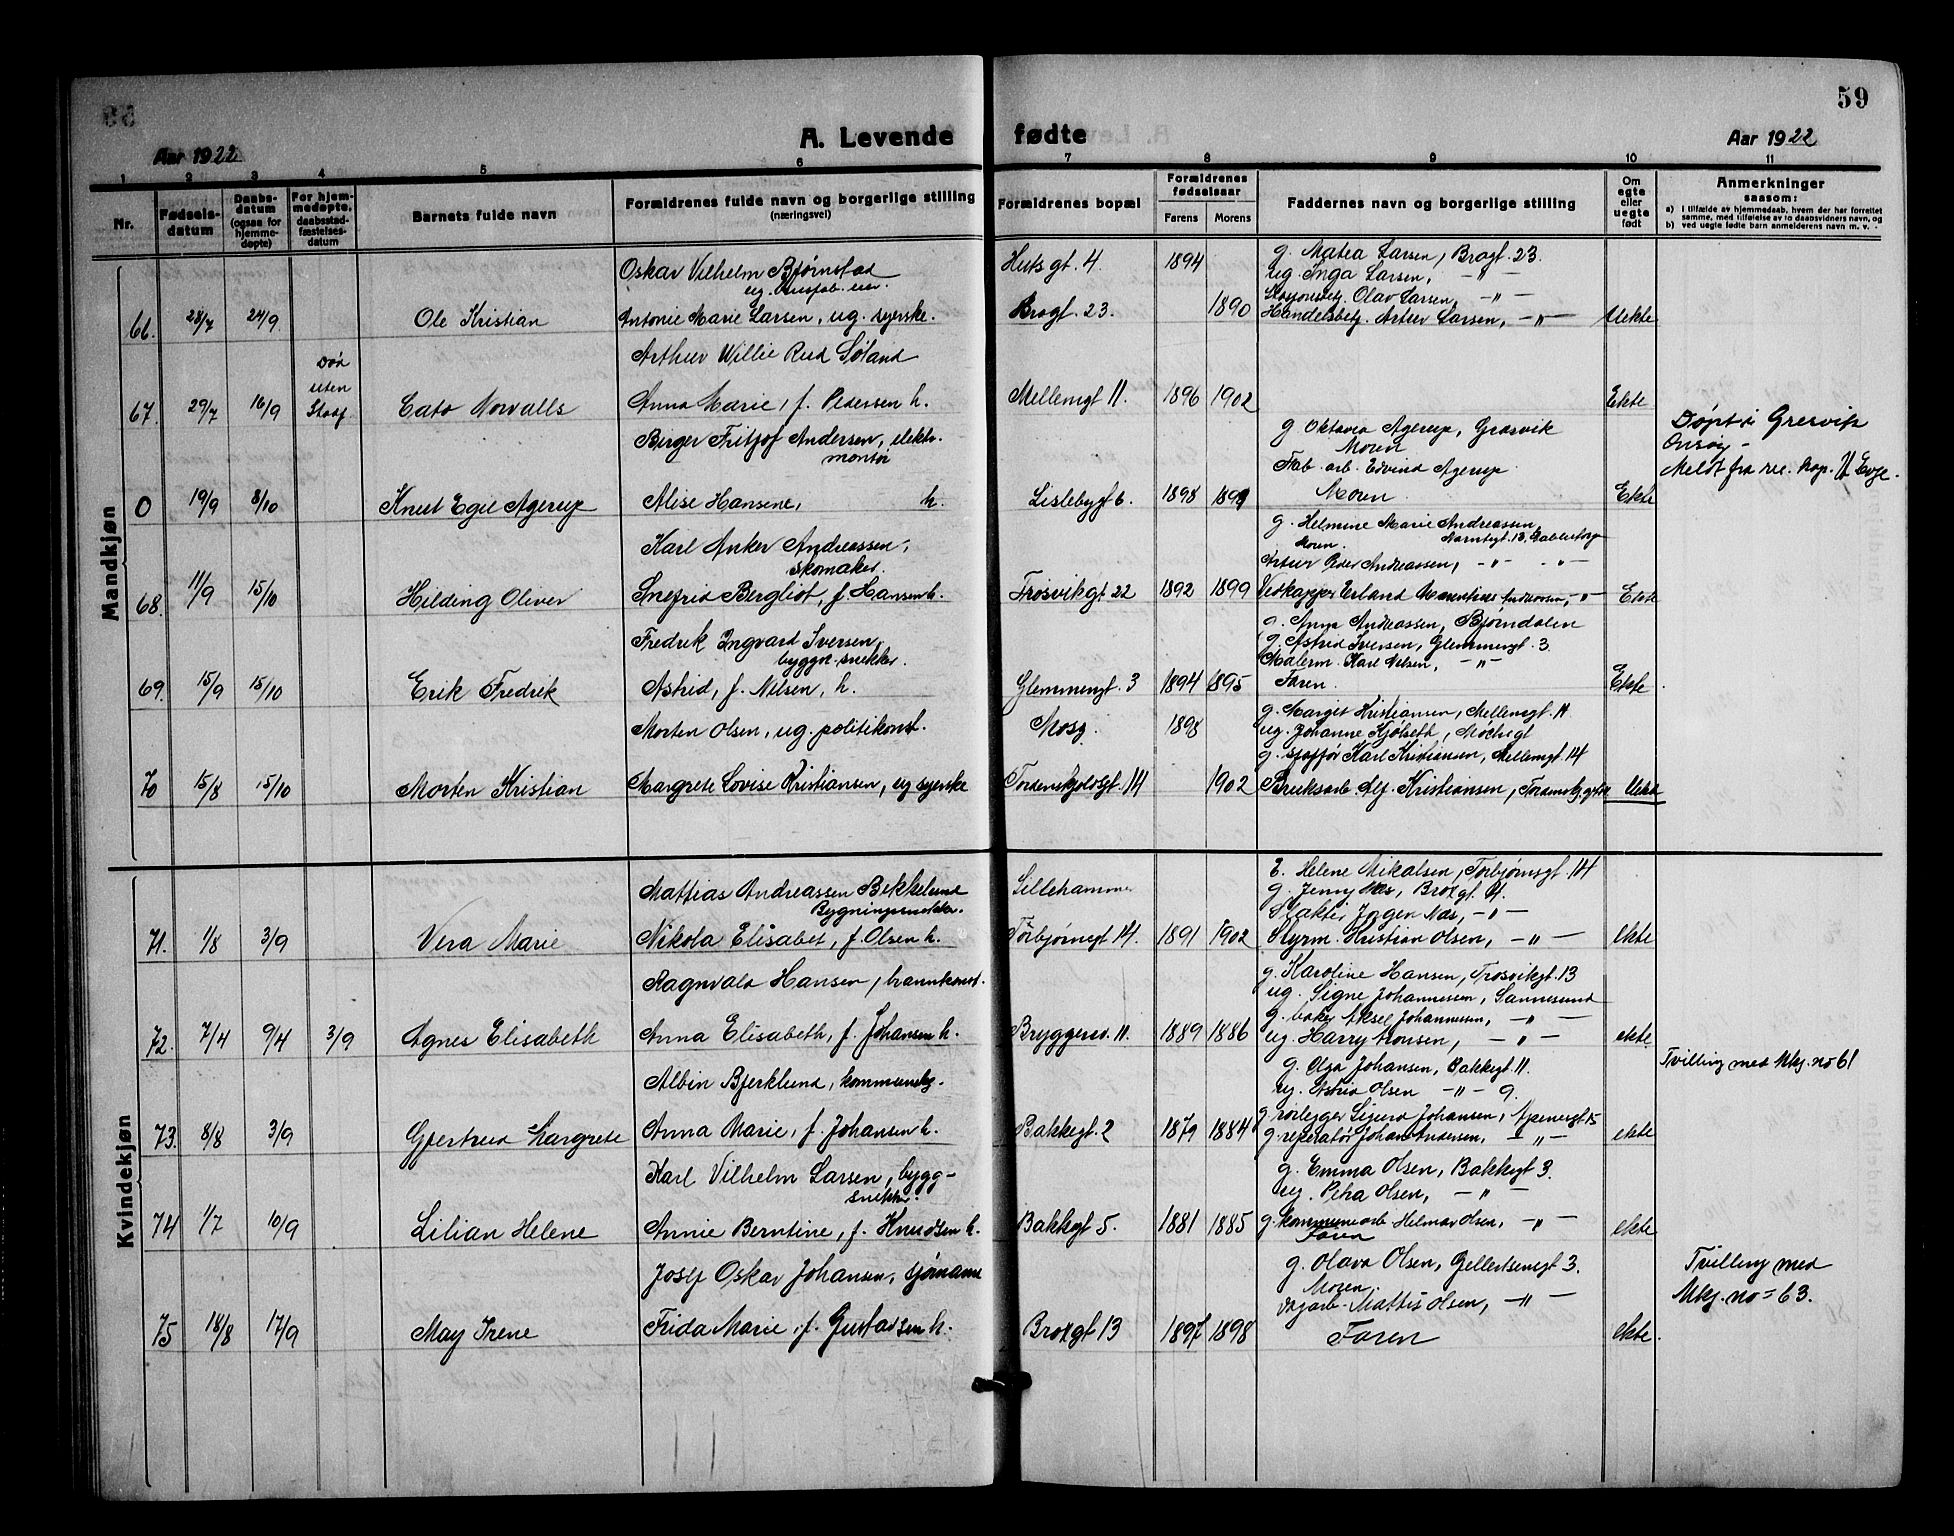 59
A. Levende fødte
Aar 1922
Aar 1922
1 2 3 4 5 6 7 8 9 10 11
Nr.
Fødsels-
datum
Daabs-
datum
(ogsaa for
hjemme-
døpte)
For hjem-
medøpte,
daabsstad-
fæstelses-
datum
Barnets fulde navn
Forældrenes fulde navn og borgerlige stilling
(næringsvei)
Forældrenes bopæl
Forældrenes
fødselsaar
Farens Morens
Faddernes navn og borgerlige stilling
Om
egte
eller
uegte
født
Anmerkninger
saasom:
a) I tilfælde av hjemmedaab, hvem der har forrettet
samme, med tilføielse av to daabsvidners navn, og
b) ved uegte fødte barn anmelderens navn m. v.
Mandkjøn
Oskar Vilhelm Bjørnstad Hutsgt. 4. 1894 g. Matea Larsen, Brogt. 23.
ug. ug. Inga Larsen, — " —
Olav Larsen, — " —
66. 28/7 24/9 Ole Kristian Antonie Marie Larsen, ug. syerske. Brogt. 23. 1890 Handelsbetj. Artur Larsen, — " — Uekte
Arthur Willie Søland
Død
uten
Staaf.
67. 29/7 16/9 Cato Norvalls Anna Marie, f. Pedersen h. Mellemgt 11. 1896 1902 Ekte
Birger Fritjof Andersen, elektr.
montør
g. Oktavia Agerup, Græsvik
Moren
Fab. arb. Edvind Agerup.
Døpt i Gresvik
Onsøy —
Meldt fra res. kap.
0 19/9 8/10 Knut Egil Agerup Alise Hansine, h. Lislebygt 6. 1898 Moren Ekte
Karl Anker Andreassen,
skomaker.
g. Helmine Marie Andreassen
Moren.
Artur Peder Andreassen, — " — — " —
68. 11/9 15/10 Hilding Oliver Snefrid Bergliot, f. Hansen h. Trosvikgt 22 1892 1899 Erland Andreassen, — " — Ekte
Fredrik Ingvard Iversen,
bygge-snekker.
g. Anna Andreassen, Bjørndalen
g. Astrid Iversen, Glemmengt. 3.
Malerm. Karl Nilsen, — " —
69. 15/9 15/10 Erik Fredrik Astrid, f. Nilsen, h. Glemmengt. 3 1894 1895 Faren. Ekte
Morten Olsen, ug. politikonst. Moss. 1898 g. Margit Kristiansen, Mellemgt. 11
ug. Johanne Kjølseth,
g. Karl Kristiansen, Mellemgt 14
70 15/8 15/10 Morten Kristian Margrete Lovise Kristiansen, ug syerske Tordenskjoldsgt. 14 1902 Bruksarb. Alf. Kristiansen, Uekte
Kvindekjøn
Mattias Andreassen Bekkelund
Bygningssnekker.
Lillehammer
E. Helene Mikalsen, Torbjørnsgt. 14
g. Jenny Næs, Brogt. 4.
Jørgen Næs, — " —
71. 1/8 3/9 Vera Marie Nikola Elisabet, f. Olsen h. Torbjørnsgt 14. 1891 1902 Styrm. Kristian Olsen, — " — ekte
Ragnvald Hansen, brannkonst. g. Karoline Hansen, Trosvikgt. 13
ug. Signe Johannesen, Sannesund
g. baker Aksel Johannesen, — " —
72. 7/4 9/4 3/9 Agnes Elisabeth Anna Elisabeth, f. Johansen h. Bryggerv. 11. 1889 1886 ug. Harry Monsen, — " — ekte
Albin Bjerklund, g. Olga Johansen, Bakkegt 11.
ug. Astrid Olsen — " — 9.
Tvilling med Mkj. no 61
g. rørlegger Sigurd Johansen, Apenesgt 15
73. 8/8 3/9 Gjertrud Margrete Anna Marie, f. Johansen h. Bakkegt. 2 1879 1884 g. reperatør Johan Andersen, — " — ekte
Karl Vilhelm Larsen, bygg-
snekker.
g. Emma Olsen, Bakkegt 3.
ug. Petra Olsen, — " —
74 1/7 10/9 Lilian Helene Annie Berntine, f. Knudsen h. Bakkegt 5. 1881 1885 g. kommunearb Helmar Olsen, — " — ekte
Faren
Josef Oskar Johansen, sjømann
g. Olava Olsen, Gellertsensgt 3.
Moren,
Mattis Olsen, — " —
Tvilling med
Mkj. no = 63.
75 18/8 17/9 May Irene Frida Marie, f. Gustavsen h. Brogt 13 1897 1898 Faren ekte